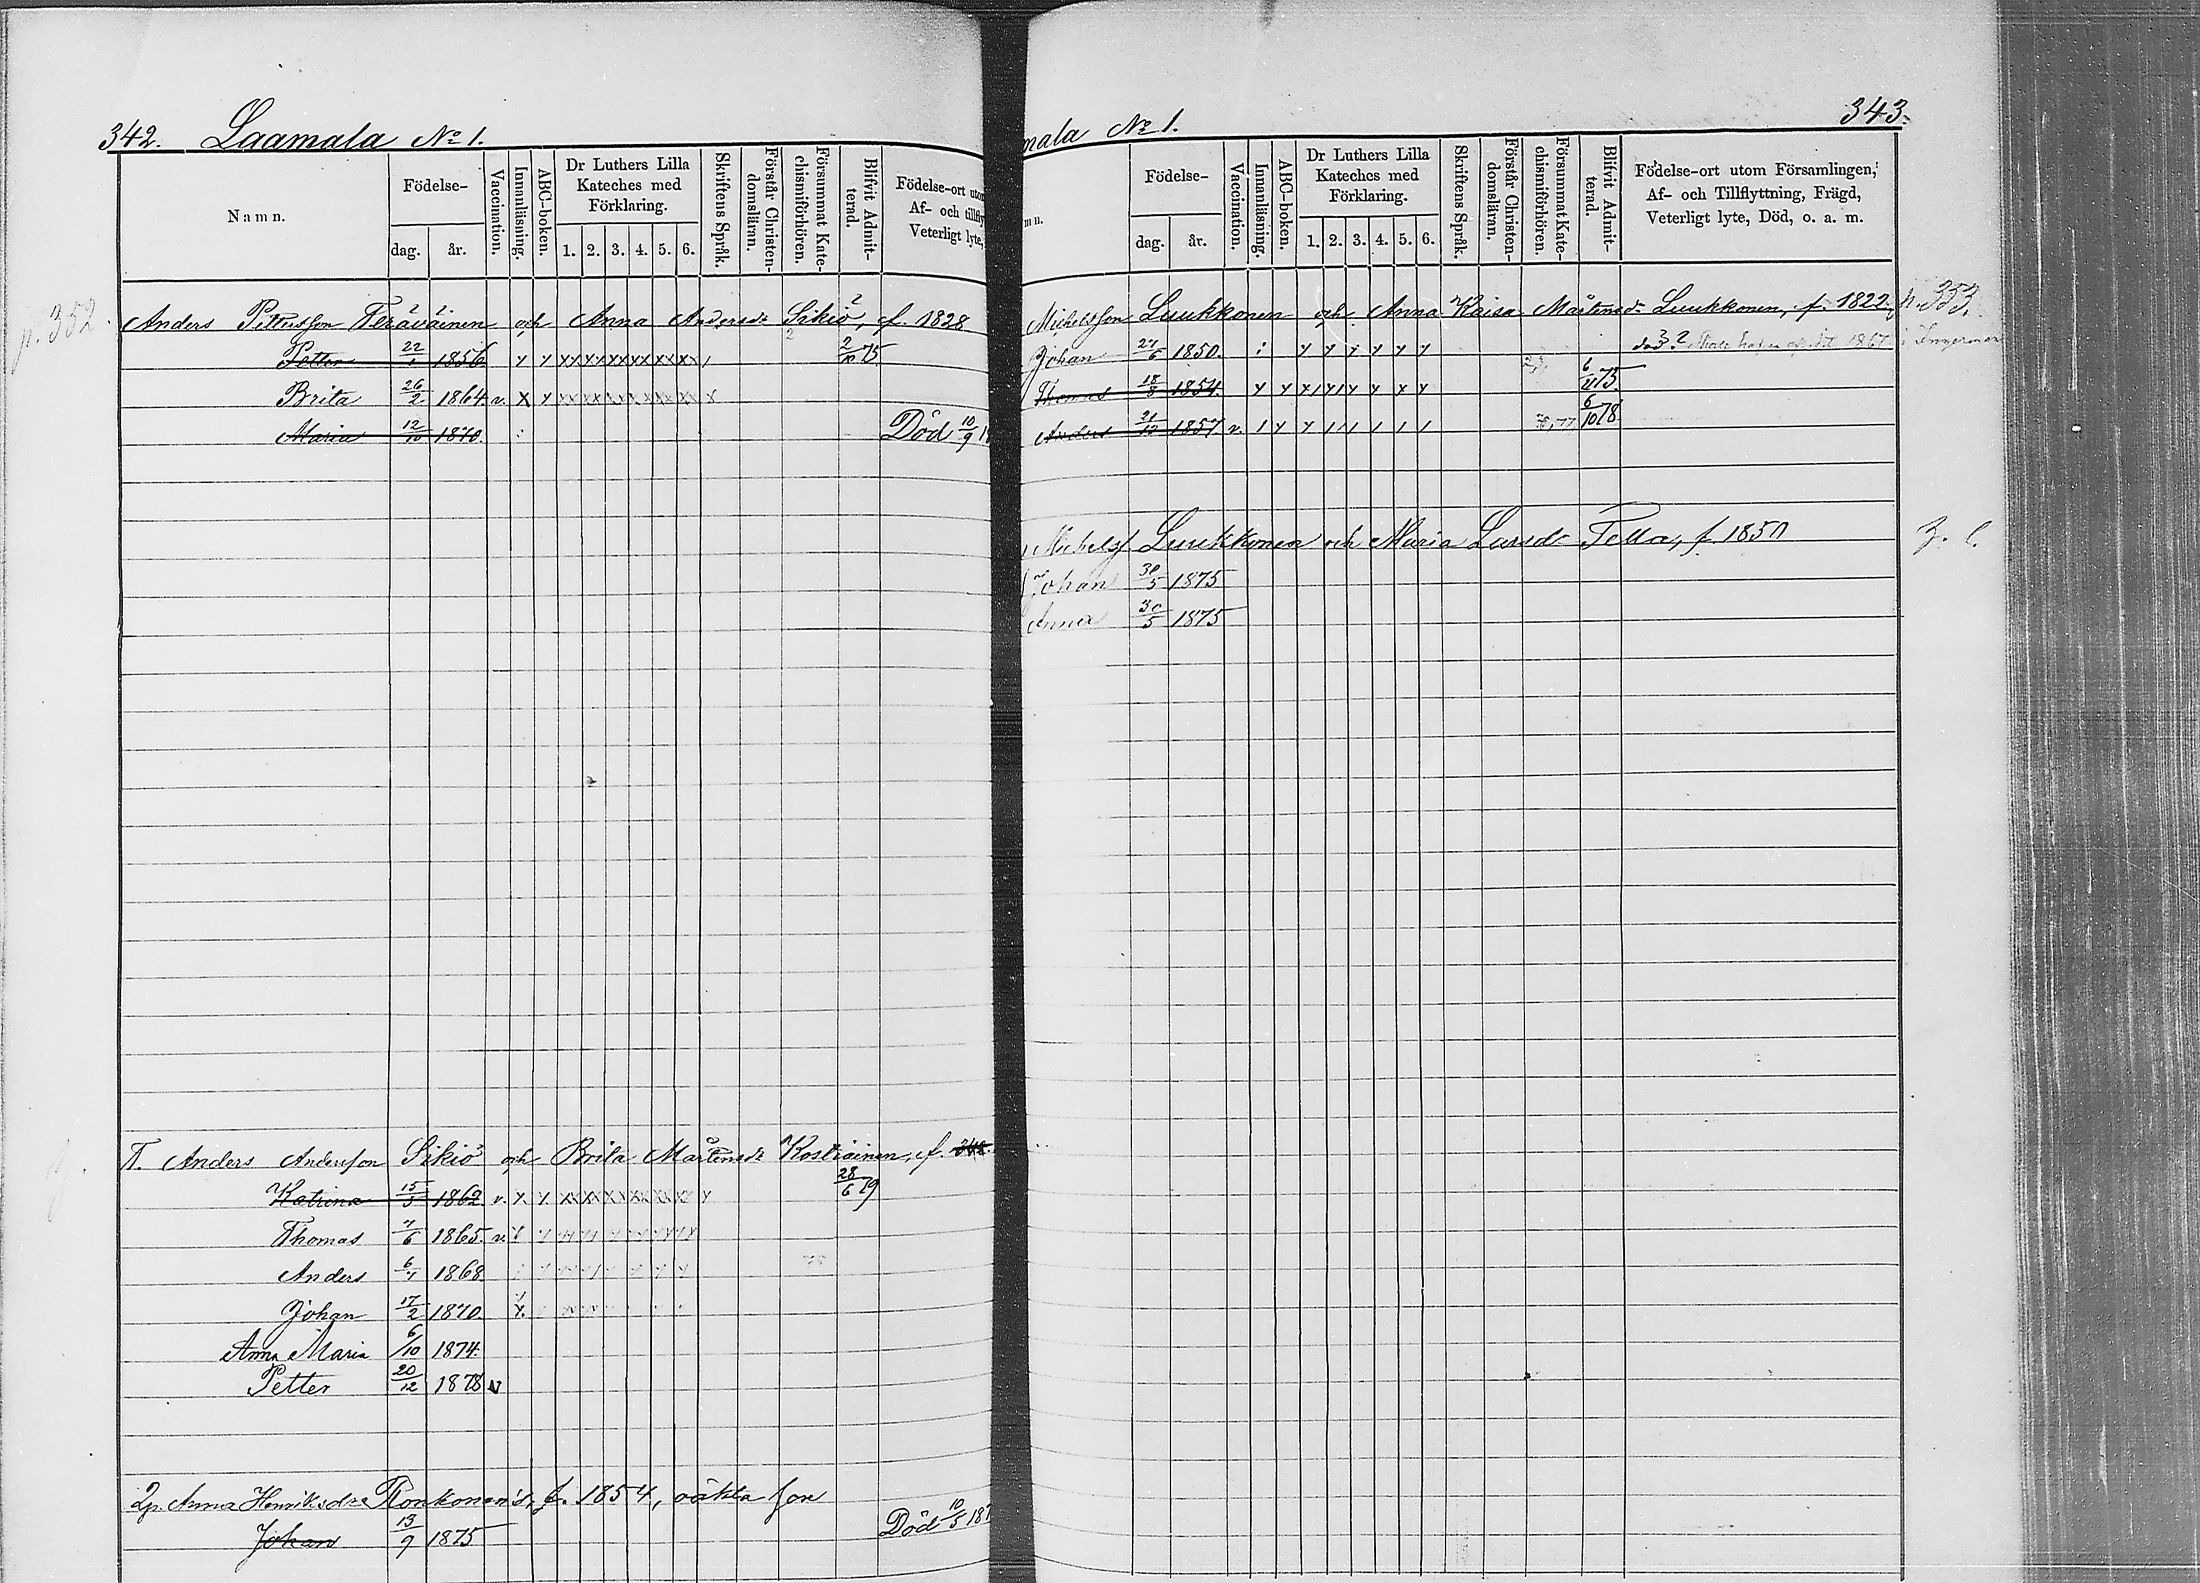 342. Laamala No 1.
Namn.
Födelse-
dag. år.
Vaccination.
Innanläsning.
ABC-boken.
Dr Luthers Lilla Kateches med Förklaring.
1. 2. 3. 4. 5. 6.
Skriftens Språk.
Förstår Christendomsläran.
Försummat Katechismiförhören.
Blifvit Admitterad.
Födelse-ort utom
Af- och tillfly
Veterligt lyte,
p. 352
Anders Pettersson Teräväinen och Anna Andersdr Sikiö, f. 1828
Petter 22/1 1856 2/10 75
Brita 26/2 1864 v.
Maria 12/10 1870 Död 10/9
T. Anders Andersson Sikiö och Brita Mårtensdr Kostiainen, f. 348.
Katrina 15/5 1862 v. 28/6 79
Thomas 7/6 1865 v.
Anders 6/4 1868
Johan 17/2 1870.
Anna Maria 6/10 1874.
Petter 20/12 1878 v
Anna Henriksdr Ronkonen's, f. 1854, oäkta son
Johan 13/9 1875 Död 10/5 187
mala No 1. 343.
mn.
Födelse-
dag. år.
Vaccination.
Innanläsning.
ABC-boken.
Dr Luthers Lilla Kateches med Förklaring.
1. 2. 3. 4. 5. 6.
Skriftens Språk.
Förstår Christendomsläran.
Försummat Katechismiförhören.
Blifvit Admitterad.
Födelse-ort utom Församlingen,
Af- och Tillflyttning, Frägd,
Veterligt lyte, Död, o. a. m.
Michelsson Luukkonen och Anna Kaisa Mårtensdr Luukkonen, f. 1822, p. 353.
Johan 27/6 1850. 1867 i
Thomas 18/8 1854. 6/11 75
Anders 21/12 1857 v. 77 6/10 78
Michelss. Luukkonen och Maria Larsdr Tella, f. 1850
Johan 30/5 1875
Anna 30/5 1875